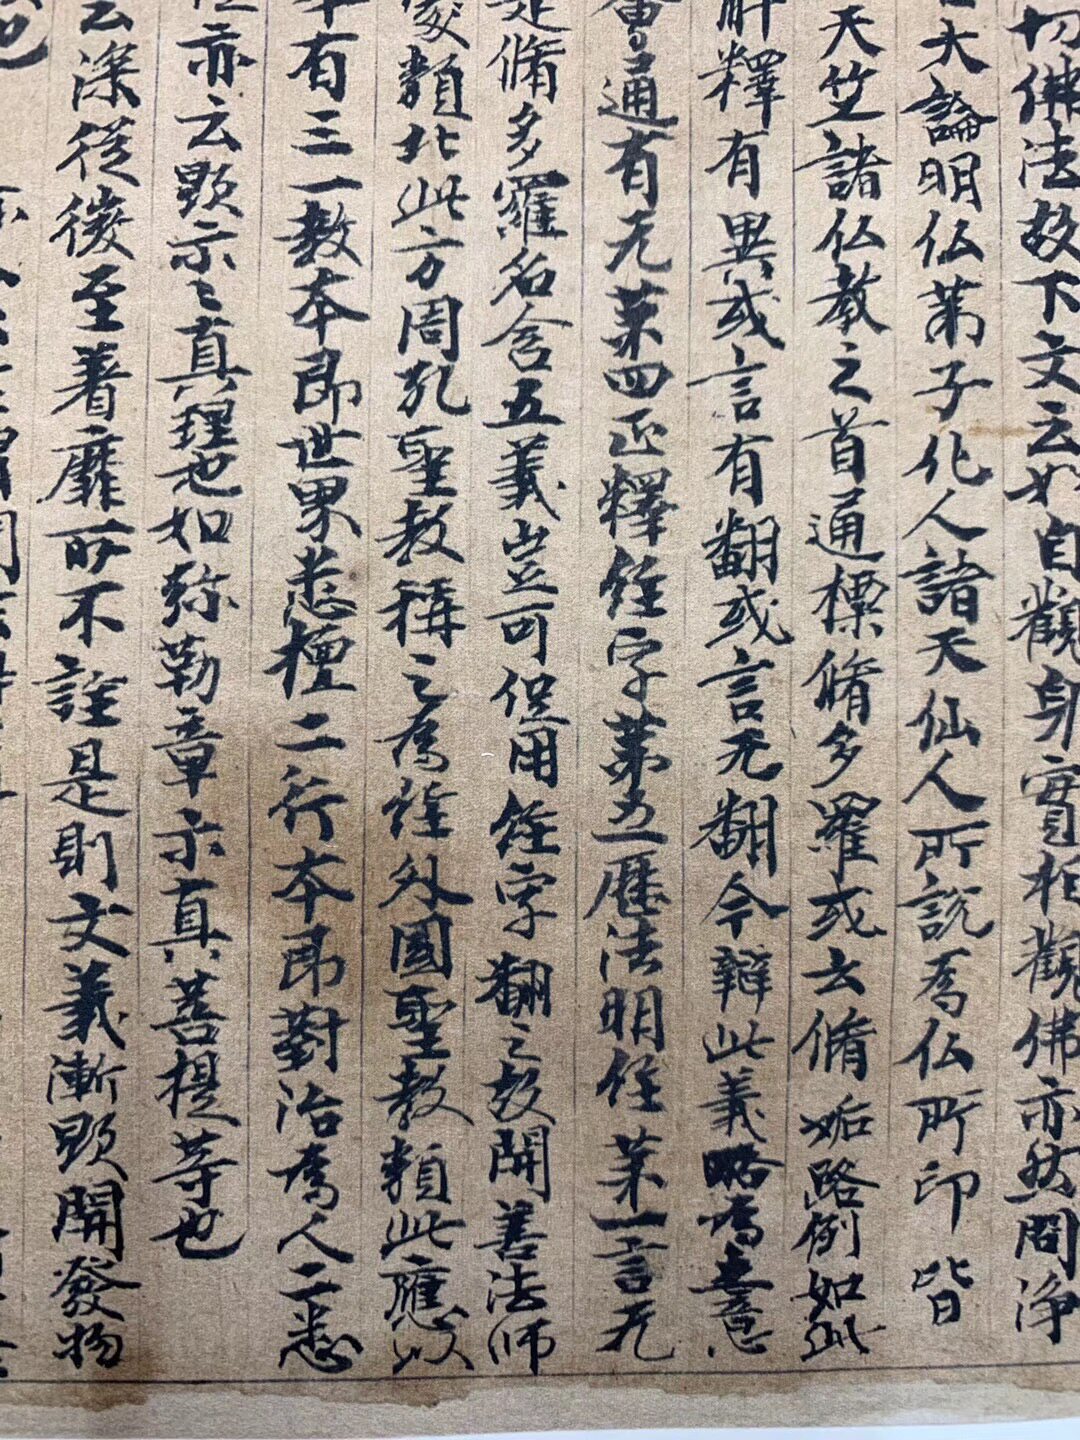 切佛法故下文云如自觀身實相觀佛亦然問淨
大論明仏弟子化人諸天仙人所說為仏所印皆
天竺諸仏教之首通標脩多羅或云脩妬路例如此
解釋有異或言有翻或言无翻今辯此義略為五意
會通有无第四正釋經字第五歷法明經第一言无
是脩多羅名含五義豈可但用經字翻之故開善法師
類北此方周孔聖教稱之為經外國聖教類此應以
有三一教本即世界悉檀二行本即對治為人二悉
亦云顯示〻真理也如弥勒章示真菩提等也
云深從後至著靡所不詮是則文義漸顯開發物